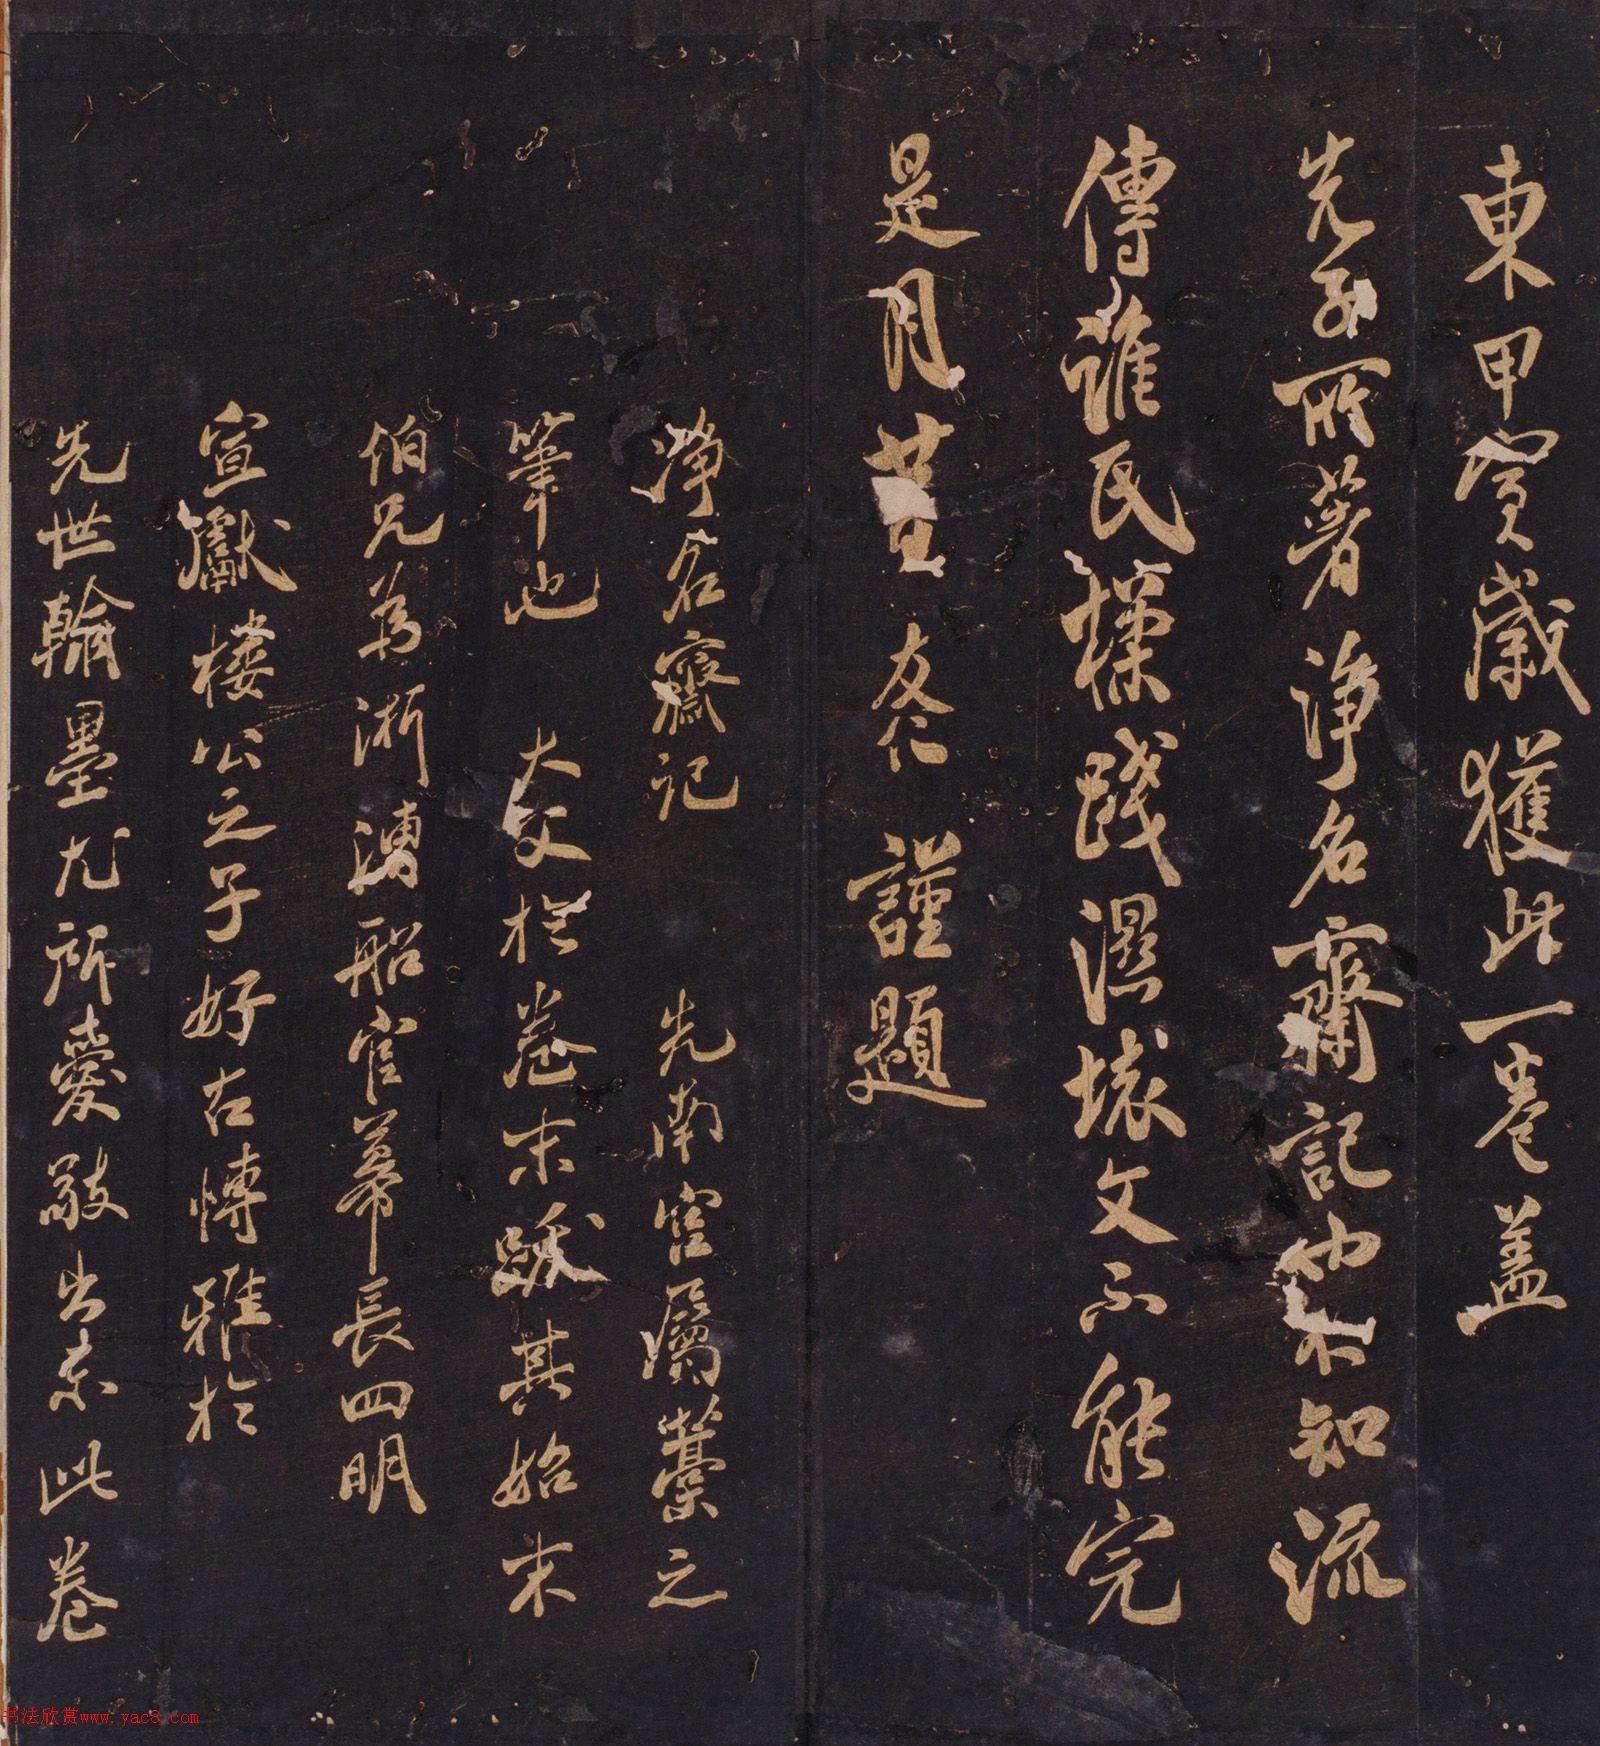 東甲寅歲獲此一卷蓋
先子所著淨名齋記也不知流
傳誰氏櫟踐濕壞文不能完
是月廿日友仁謹題
淨名齋記 先南宮屬藁之
筆也 大父於卷末跋其始末
伯兄為浙漕船官幕長四明
宣獻樓公之子好古博雅於
先世翰墨尤所愛敬出示此卷
书法欣赏www.yac8.com